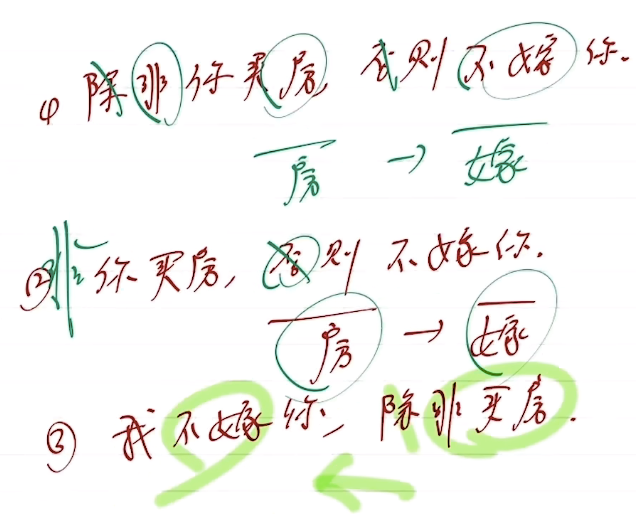 (1) 除非你买房, 否则不嫁你.
房 → 嫁
② 非 你买房, 否则不嫁你.
房 → 嫁
③ 我不嫁你, 除非买房.